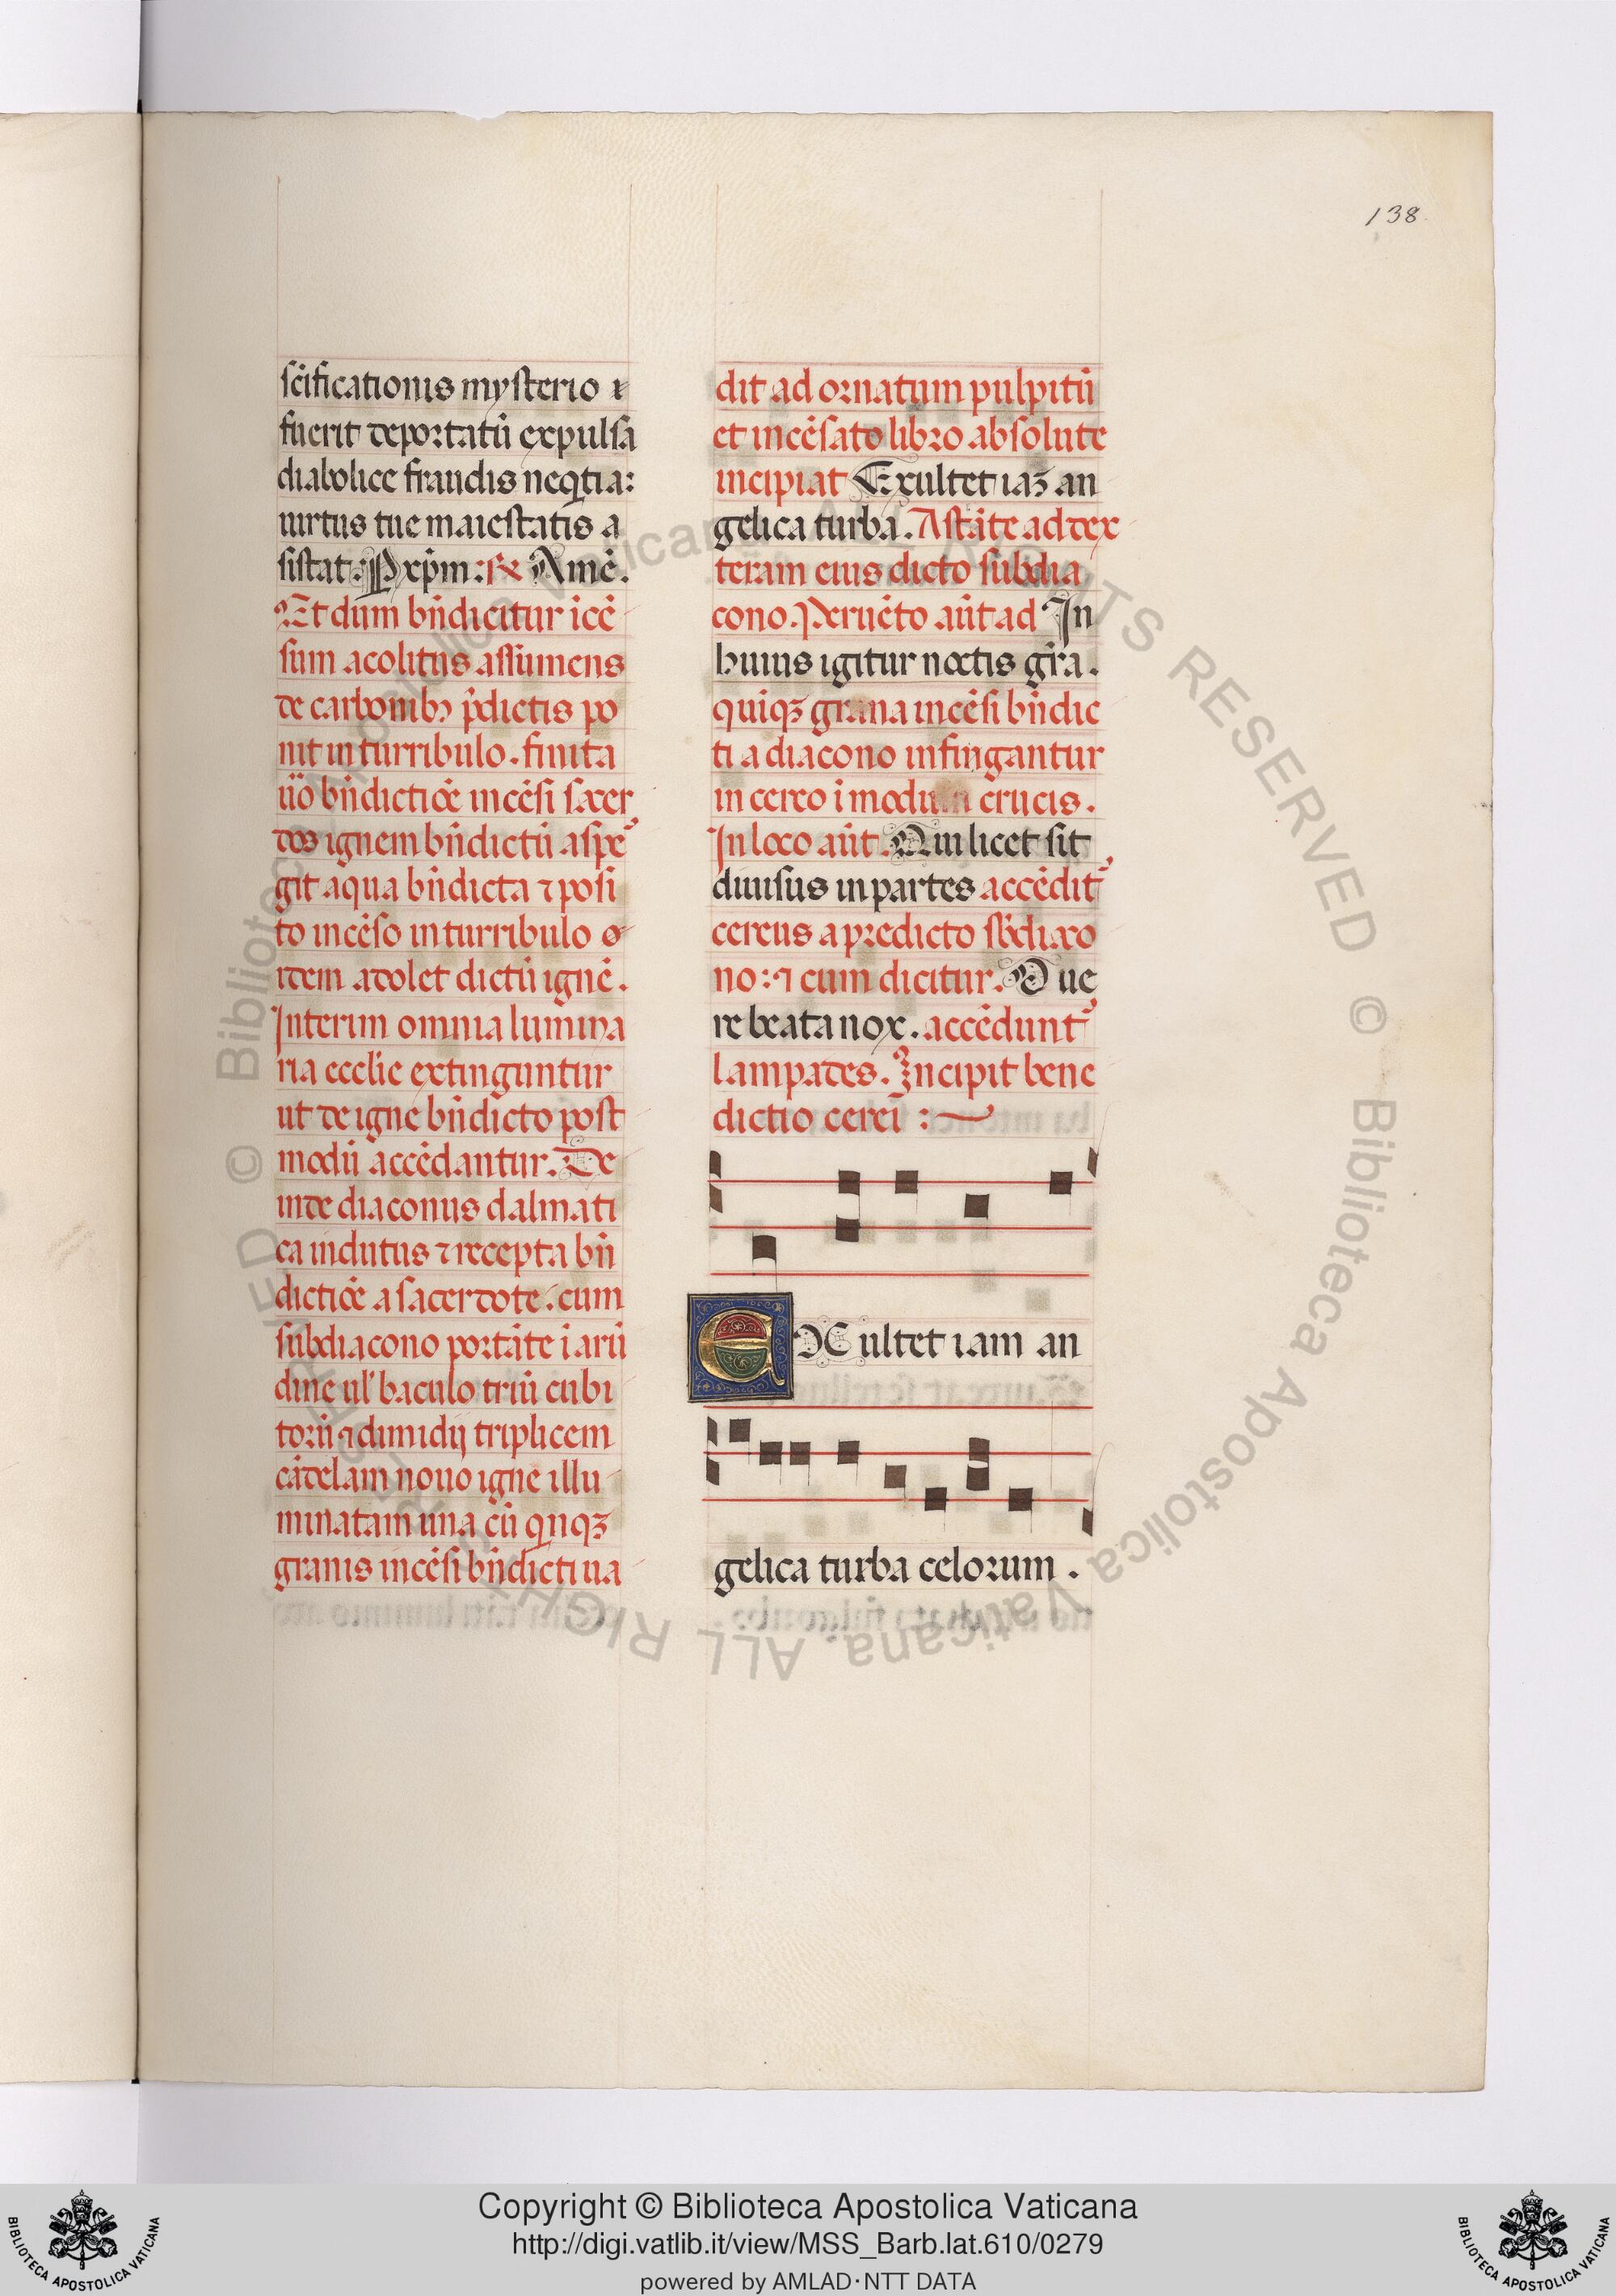 138
scificationis mysterio ⁊
fuerit deportatū expulsa
diabolice fraudis neqtia:
uirtus tue maiestatis a
sistat. P xp̄m: ℟ Amē.
Et dum bn̄dicitur īcē
sum acolitus assumens
de carbonibꝫ p̄dictis po
nit in turribulo. finita
ūo bn̄dictiōe incēsi sacer
dos ignem bn̄dictū asper
git aqua bn̄dicta ⁊ posi
to incēso in turribulo o
dem adolet dictū ignē.
Interim omnia lumina
ria ecclīe extinguntur
ut de igne bn̄dicto post
modū accēdantur. De
inde diaconus dalmati
ca indutus ⁊ recepta bn̄
dictiōe a sacerdote. cum
subdiacono portāte ī arū
dine ul' baculo triū cubi
torū ⁊ dimidij triplicem
cādelam nouo igne illu
minatam una cū qnqꝫ
granis incēsi bn̄dicti ua
dit ad ornatum pulpitū
et incēsato libro absolute
incipiat Exultet iaꝫ an
gelica turba. Astāte ad dex
teram eius dicto subdia
cono. Peruēto aūt ad In
huius igitur noctis gr̄a.
quiqꝫ grana incēsi bn̄dic
ti a diacono infingantur
in cereo ī modum crucis.
In loco aūt. Qui licet sit
diuisus in partes accēdit᷑
cereus a predicto sb̄diaco
no: ⁊ cum dicitur. O ue
re beata nox. accēdunt᷑
lampades. Incipit bene
dictio cerei :~
EXultet iam an
gelica turba celorum.
© Biblioteca Apostolica Vaticana ALL RIGHTS RESERVED © Biblioteca Apostolica Vaticana ALL RIGHTS RESERVED
BIBLIOTECA APOSTOLICA VATICANA
Copyright © Biblioteca Apostolica Vaticana
http://digi.vatlib.it/view/MSS_Barb.lat.610/0279
powered by AMLAD·NTT DATA
BIBLIOTECA APOSTOLICA VATICANA